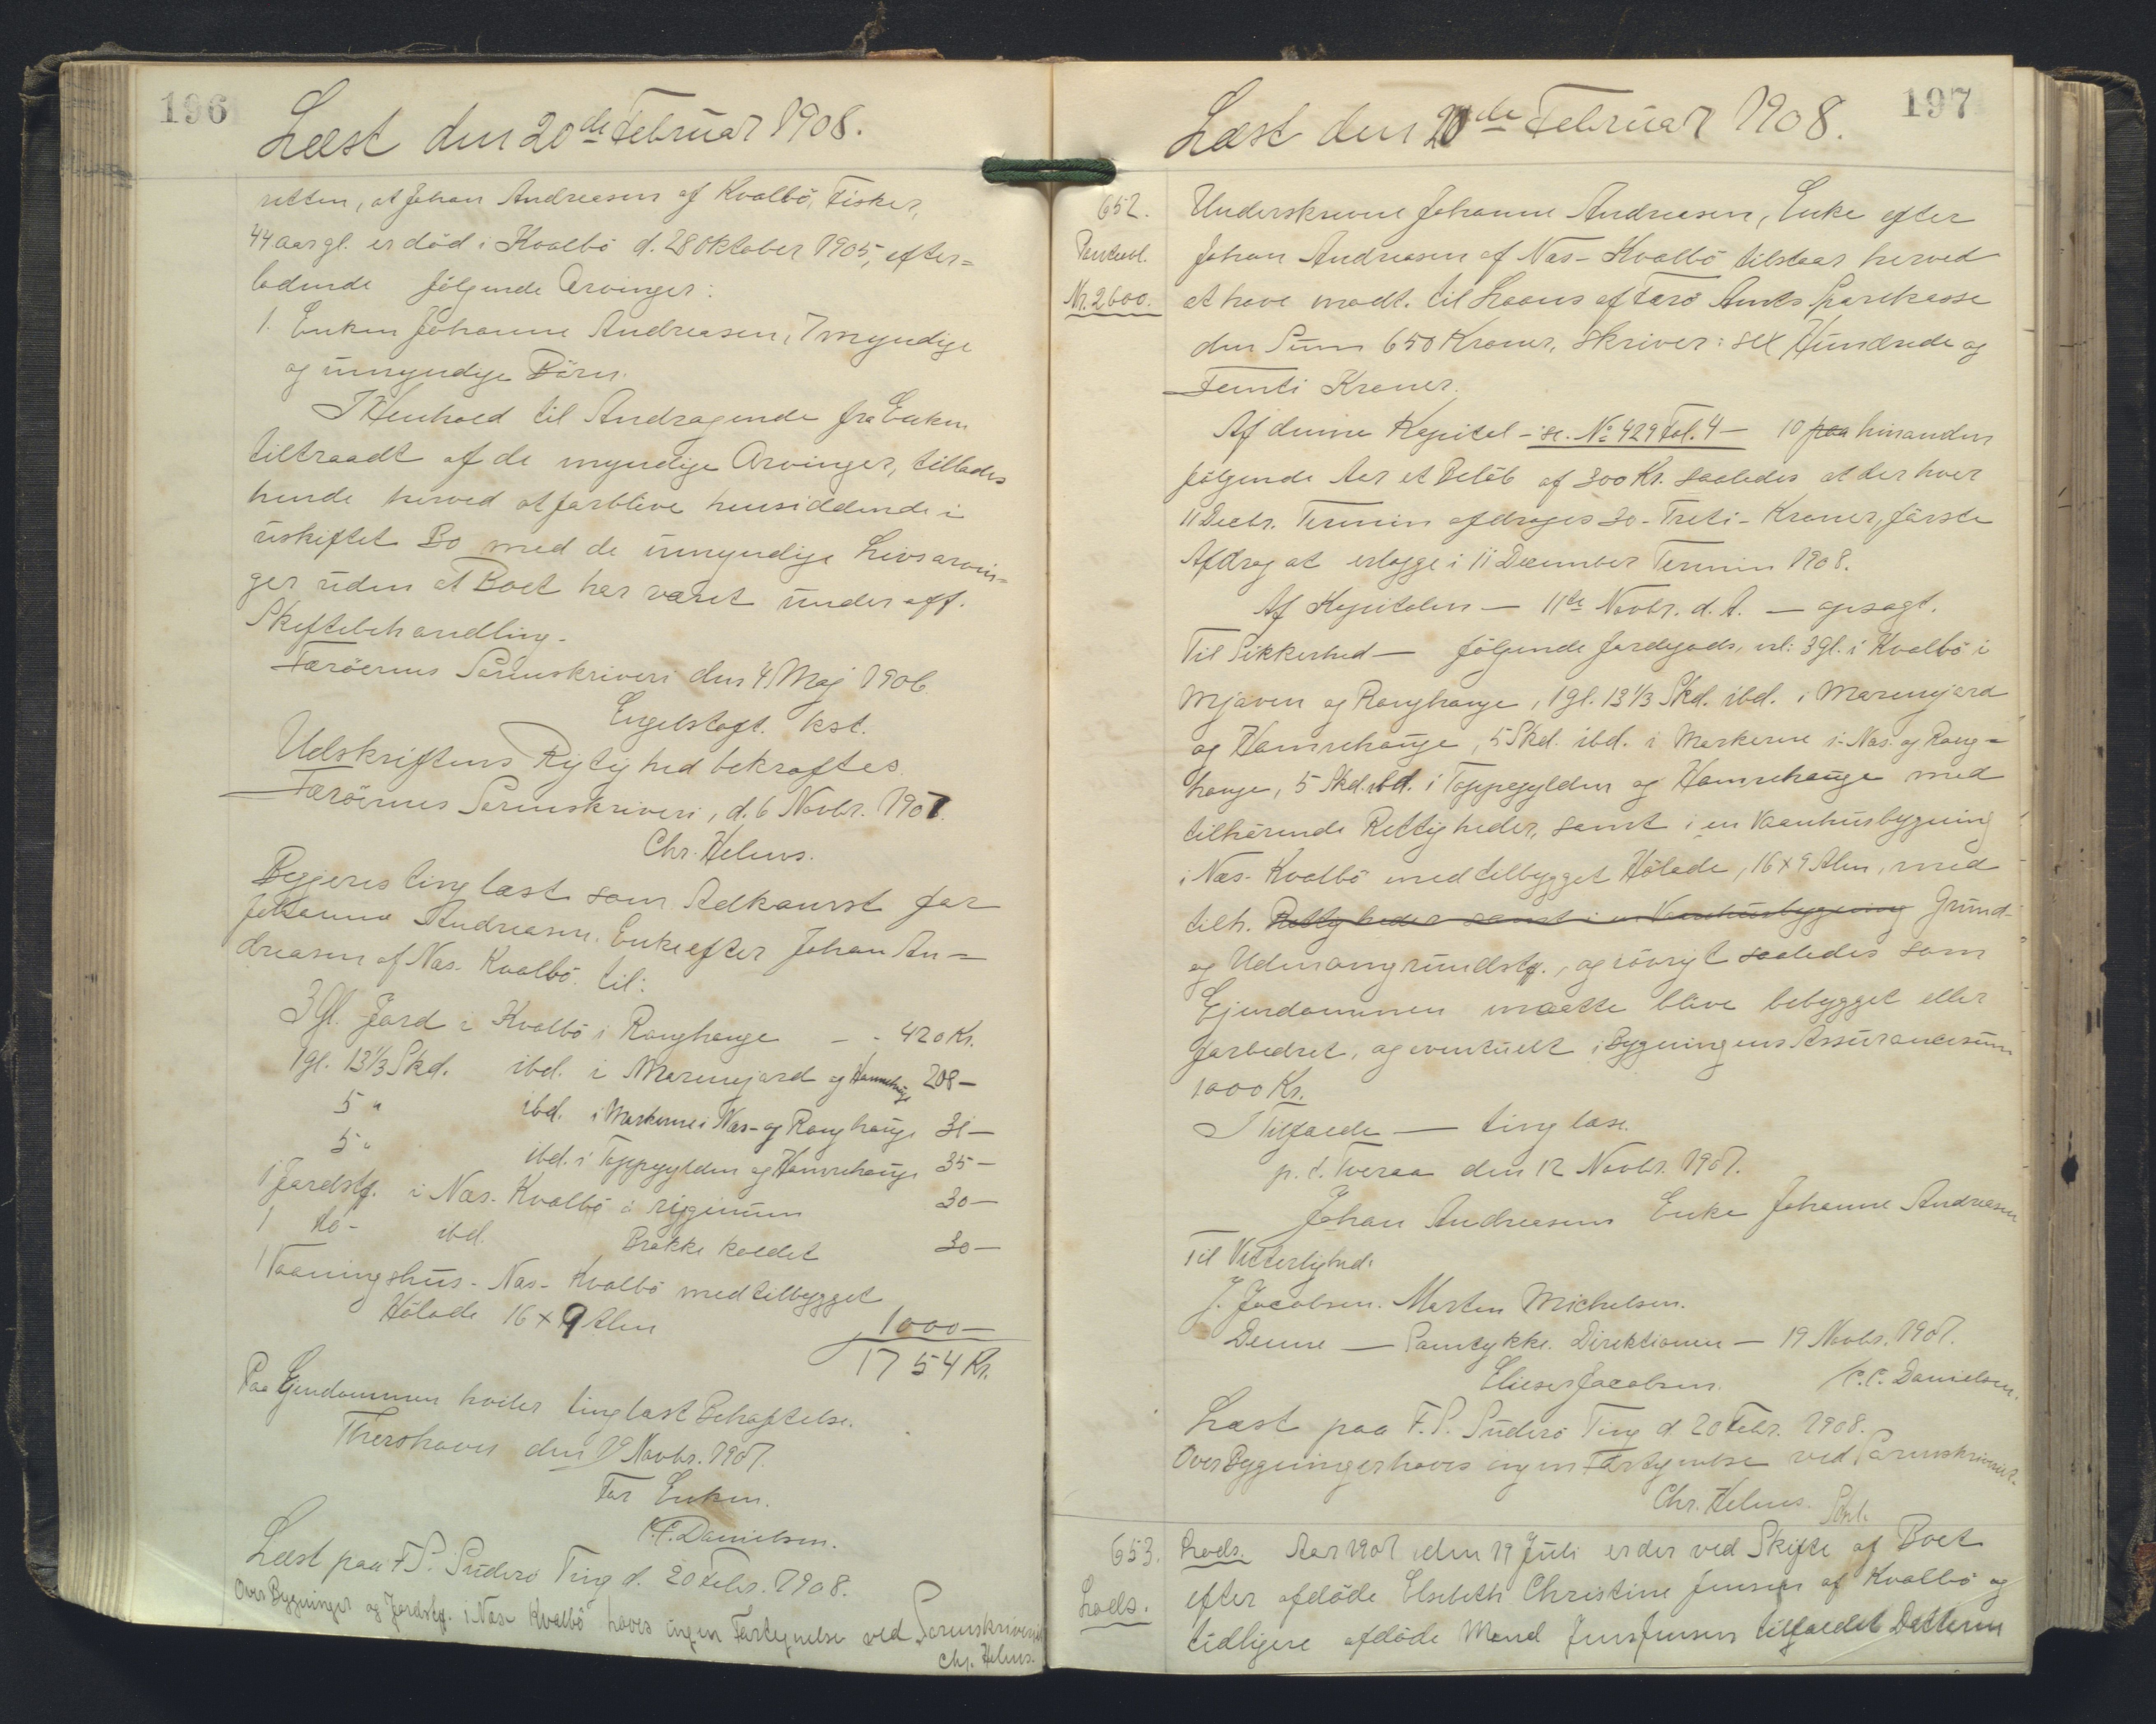 196
Læst den 20de Februar 1908.
retten, at Johan Andreasen af Kvalbö, Fisker,
44 aar gl. er död i Kvalbö d. 28 Oktober 1905, efter=
ladende fölgende Arvinger:
1. Enken Johanne Andreasen, 7 myndige
og umyndige Börn.
I Henhold til Andragende fra Enken
tiltraadt af de myndige Arvinger, tillades
hende herved at forblive hensiddende i
uskiftet Bo med de umyndige Livsarvin=
ger uden at Boet har været under off.
Skiftebehandling.
Færöernes Sorenskriveri den 4 Maj 1906.
Engelstoft. kst.
Udskriftens Rigtighed bekræftes.
Færöernes Sorenskriveri, d. 6 Novbr. 1907.
Chr. Helms.
Begjæres tinglæst som Adkomst for
Johanne Andreasen, Enke efter Johan An=
dreasen af Næs-Kvalbö til:
3 Gl. Jord i Kvalbö i Ranghauge - - 420 Kr.
1 gl. 13 1/3 Skd. ibd. i Mærnegjærd og Hamrehauge 208 -
5 " ibd. i Markerne i Næs- og Ranghauge 31 -
5 " ibd. i Toppegylden og Hamrehauge 35 -
1 Jordstk. i Næs-Kvalbö á riginum 30 -
1 do - ibd. Brekke kaldet 30 -
1 Vaaningshus - Næs-Kvalbö med tilbygget
Hölade 16 x 9 Alen 1000 -
1754 Kr.
Paa Ejendommen hviler tinglæst Behæftelse.
Thorshavn den 19 Novbr. 1907.
For Enken.
C.C. Danielsen.
Læst paa F.P. Suderö Ting d. 20 Febr. 1908.
Over Bygninger og Jordstk. i Næs-Kvalbö haves ingen Fortegnelse ved Sorenskriveriet
Chr. Helms.
197
Læst den 20de Februar 1908.
652.
Panteobl.
Nr. 2600.
Underskrevne Johanne Andreasen, Enke efter
Johan Andreasen af Næs-Kvalbö tilstaar herved
at have modt. til Laans af Færö Amts Sparekasse
den Sum 650 Kroner, skriver: sex Hundrede og
Femti Kroner.
Af denne Kapital - se. No 429 Fol. 4 - 10 paa hinanden
fölgende Aar et Belöb af 300 Kr. saaledes at der hver
11 Decbr. Termin afdrages 30 - Treti - Kroner, förste
Afdrag at erlægge i 11 December Termin 1908.
Af Kapitalen - 11te Novbr. d. A. - opsagt.
Til Sikkerhed - fölgende Jordegods, vl: 3 gl. i Kvalbö i
Mjaven og Ranghauge, 1 gl. 13 1/3 Skd. ibd. i Mærnegjærd
og Hamrehauge, 5 Skd. ibd. i Markerne i Næs- og Rang=
hauge, 5 Skd. ibd. i Toppegylden og Hamrehauge med
tilhörende Rettigheder, samt i en Vaanhusbygning
i Næs-Kvalbö med tilbygget Hölade, 16 x 9 Alen, med
tilh. Rettigheder samt i en Vaanhusbygning Grund-
og Udenomgrundstk., og iövrigt saaledes som
Ejendommen maatte blive bebygget eller
forbedret, og eventuelt i Bygningens Assurancesum
1000 Kr.
I Tilfælde - tinglæse.
p. t. Tveraa den 12 Novbr. 1907.
Johan Andreasens Enke Johanne Andreasen
Til Vitterlighed:
J. Jacobsen. Morten Michelsen.
Denne - Samtykke. Direktionen - 19 Novbr. 1907.
Elieser Jacobsen. C.C. Danielsen.
Læst paa F.P. Suderö Ting d. 20 Febr. 1908.
Over Bygninger haves ingen Fortegnelse ved Sorenskriveriet.
Chr. Helms.
653.
Lods.
Lods. Aar 1907 den 19 Juli er der ved Skifte af Boet
efter afdöde Elsebeth Christine Jensen af Kvalbö og
tidligere afdöde Mand Jens Jensen tilfaldet Datteren